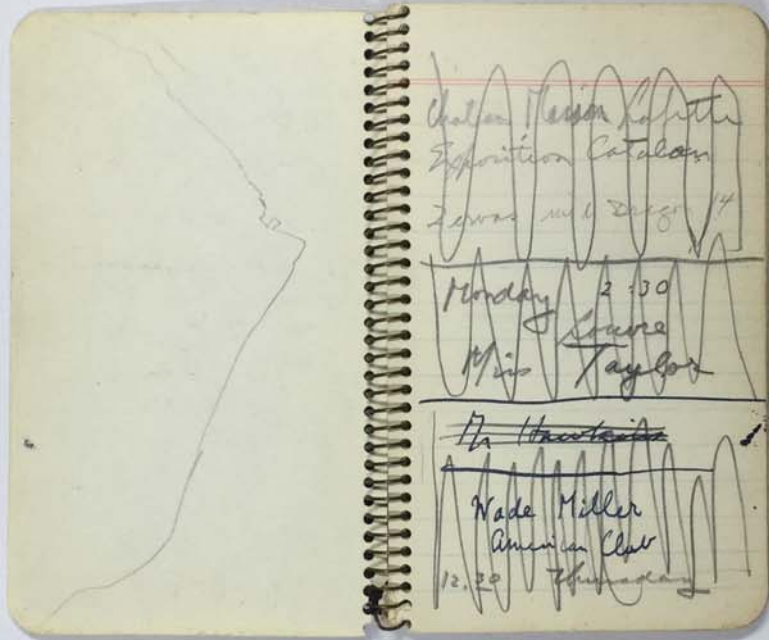 Chateau Maison Lafitte
Exposition Catalan
Monday 2:30
Louvre
Miss Taylor
Mr Hawkins
Wade Miller
American Club
12.30 Thursday